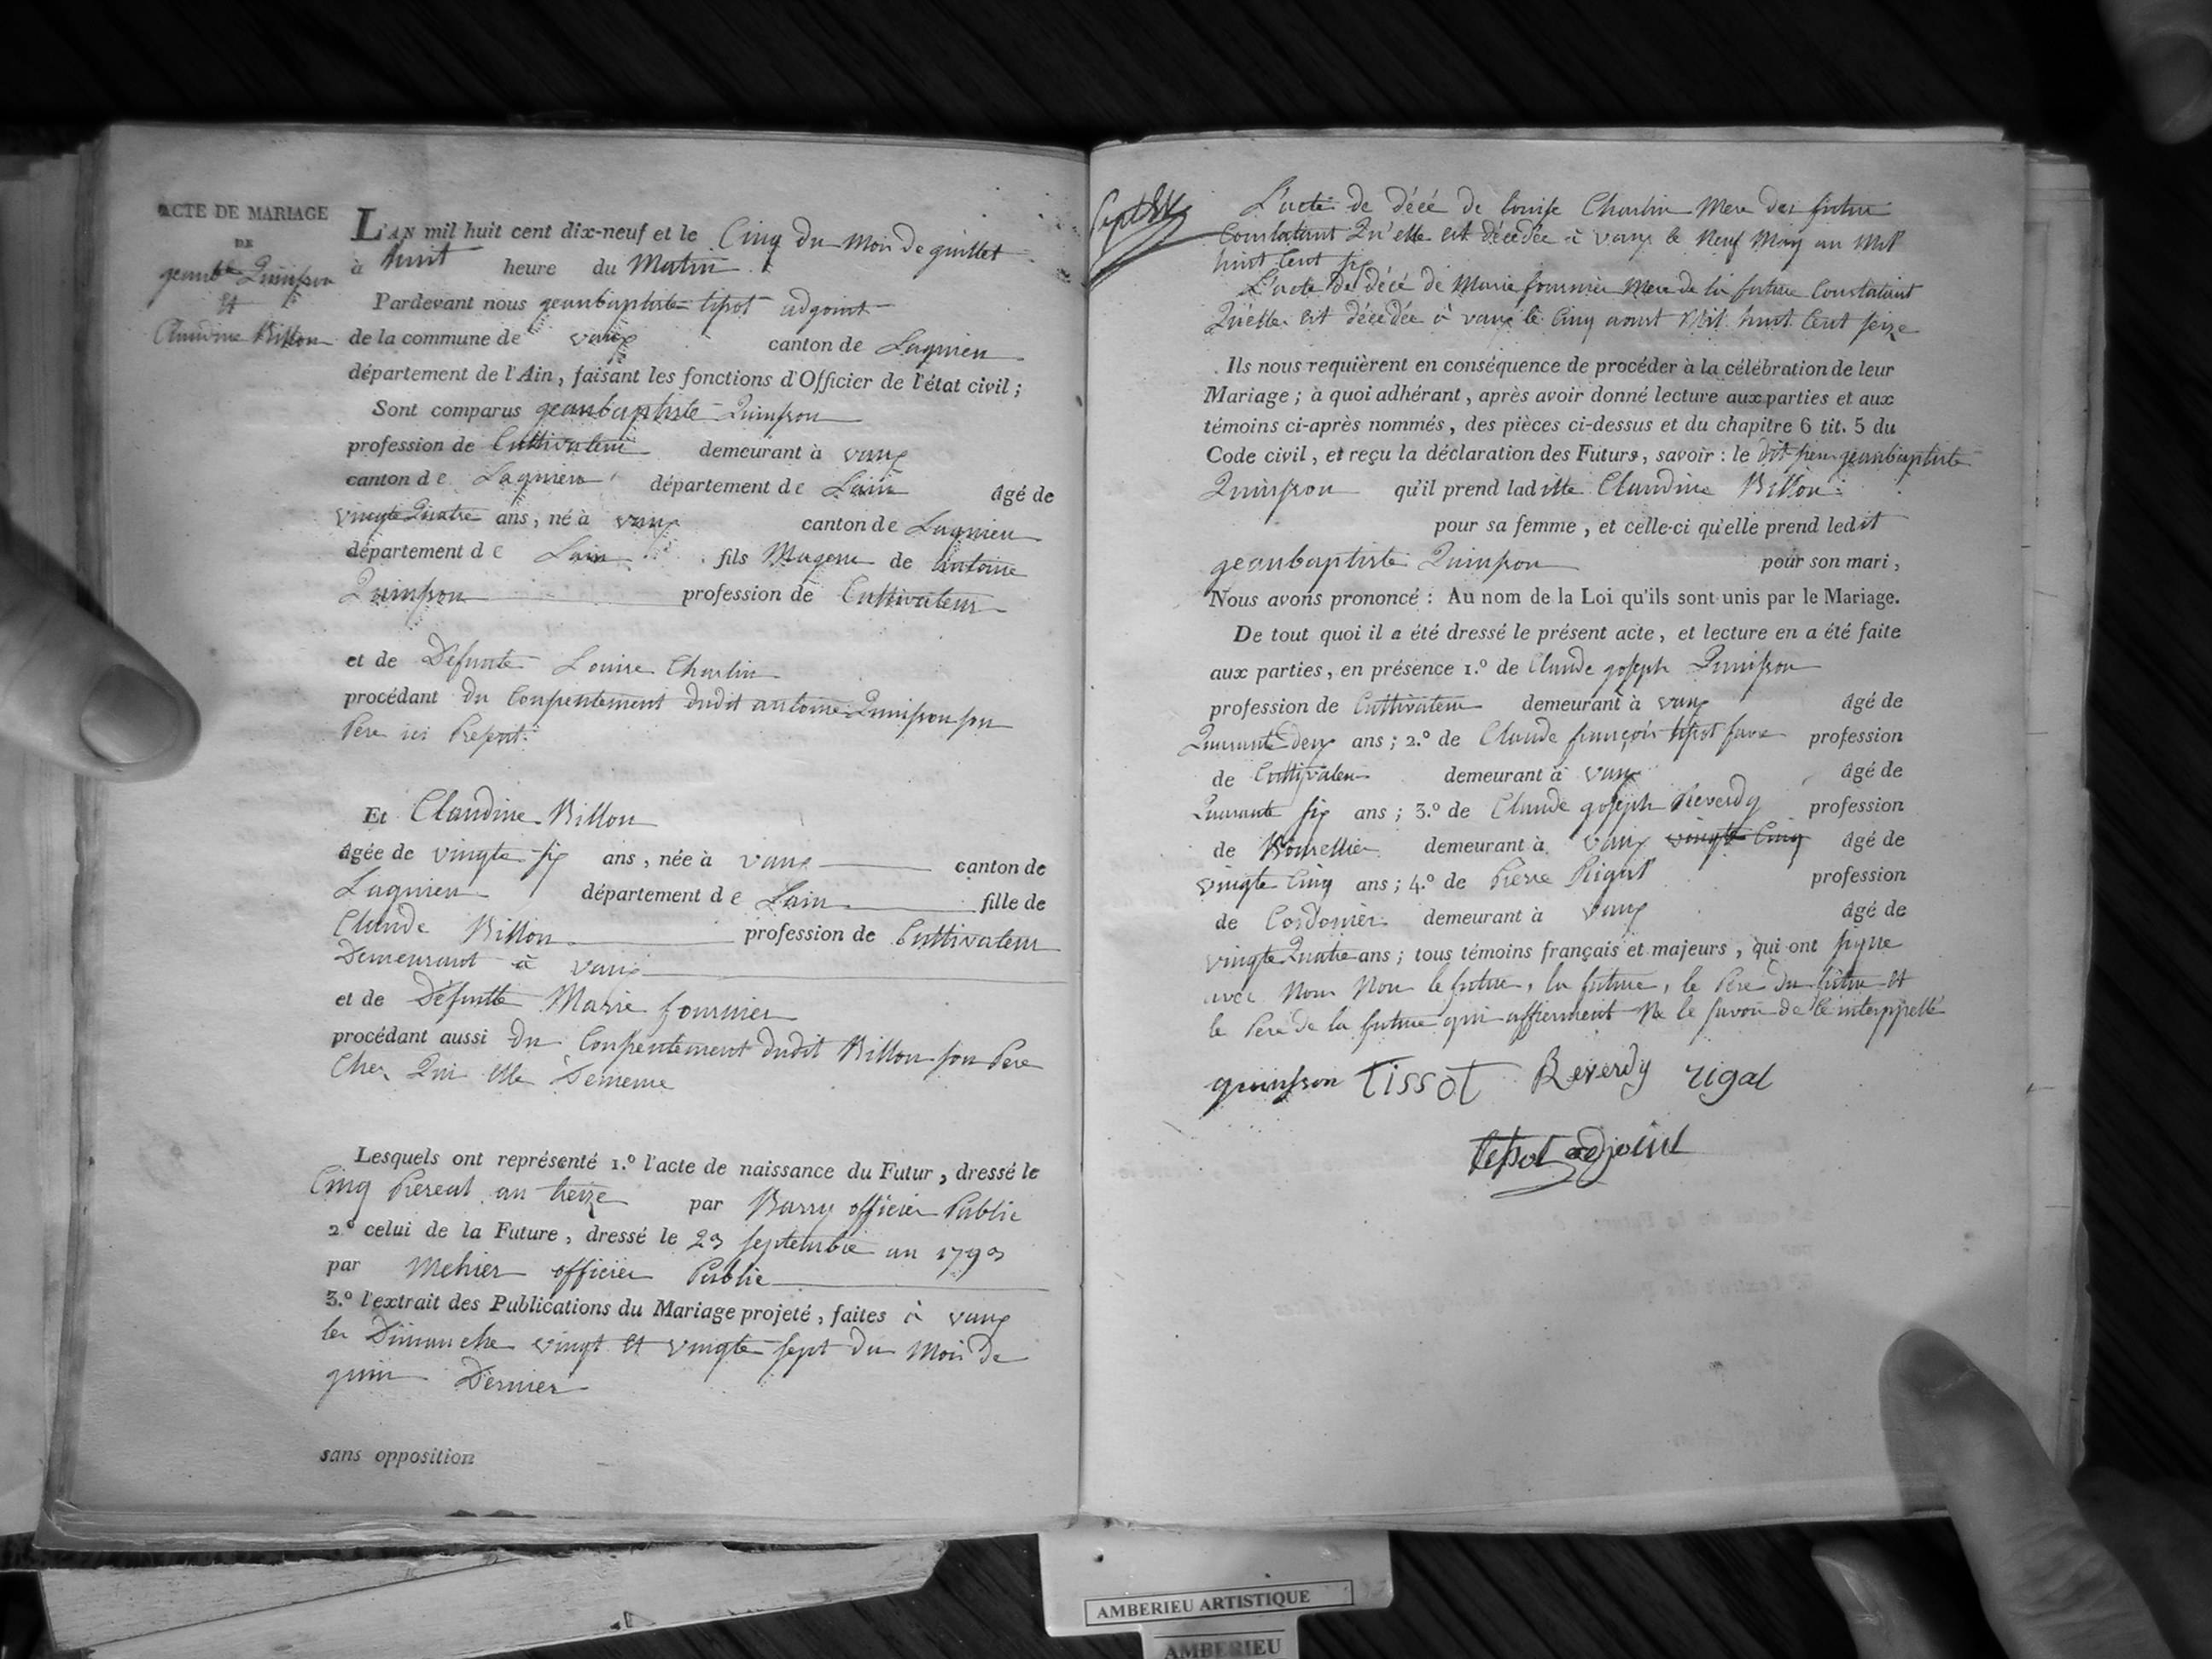 ACTE DE MARIAGE
DE
geanbte Quinson
Et
Claudine Billon
L'AN mil huit cent dix-neuf et le Cinq du Mois de guillet
à huit heure du Matin
Pardevant nous geanbaptiste tisot adgoint
de la commune de vaux canton de Lagnieu
département de l'Ain, faisant les fonctions d'Officier de l'état civil;
Sont comparus geanbaptiste Quinson
profession de Cultivateur demeurant à vaux
canton de Lagnieu département de Lain âgé de
vingte Quatre ans, né à vaux canton de Lagnieu
département de Lain fils Mageur de antoine
Quinson profession de Cultivateur
et de Défunte Louise Charlin
procédant du Consentement dudit antoine Quinson son
Pere ici Present
Et Claudine Billon
âgée de vingte six ans, née à vaux canton de
Lagnieu département de Lain fille de
Claude Billon profession de Cultivateur
Demeurant à vaux
et de Défunte Marie fournier
procédant aussi du Consentement dudit Billon son Pere
Chez Qui Elle Demeure
Lesquels ont représenté 1.º l'acte de naissance du Futur, dressé le
Cinq Prereal an treize par Barry officier Public
2º celui de la Future, dressé le 23 septembre an 1793
par Mehier officier Public
3.º l'extrait des Publications du Mariage projeté, faites à vaux
les Dimanche vingt Et vingte sept du Mois de
guin Dernier
sans opposition
L'acte de décé de Louise Charlin Mere des futur
Constatant Qu'elle est décédée à vaux le Neuf May an Mil
huit Cent six
L'acte de décé de Marie fournier Mere de la future Constatant
Qu'elle est décédée à vaux le Cinq aoust Mil huit Cent seize
Ils nous requièrent en conséquence de procéder à la célébration de leur
Mariage; à quoi adhérant, après avoir donné lecture aux parties et aux
témoins ci-après nommés, des pièces ci-dessus et du chapitre 6 tit. 5 du
Code civil, et reçu la déclaration des Futurs, savoir : le dit sieur geanbaptiste
Quinson qu'il prend laditte Claudine Billon
pour sa femme, et celle-ci qu'elle prend ledit
geanbaptiste Quinson pour son mari,
Nous avons prononcé : Au nom de la Loi qu'ils sont unis par le Mariage.
De tout quoi il a été dressé le présent acte, et lecture en a été faite
aux parties, en présence 1.º de Claude goseph Quinson
profession de Cultivateur demeurant à vaux âgé de
Quarante Deux ans; 2.º de Claude françois tisot profession
de Cultivateur demeurant à vaux âgé de
Quarante six ans; 3.º de Claude goseph Reverdy profession
de Bourellier demeurant à vaux vingte Cinq âgé de
vingte Cinq ans; 4.º de Pierre Rigat profession
de Cordonier demeurant à vaux âgé de
vingte Quatre ans; tous témoins français et majeurs, qui ont signe
avec Nous Non le futur, la future, le Pere du futur Et
le Pere de la future qui affierment Ne le savoir de Ce interppellé
quinson Tissot Reverdy rigal
tissot adjoint
AMBERIEU ARTISTIQUE
AMBERIEU